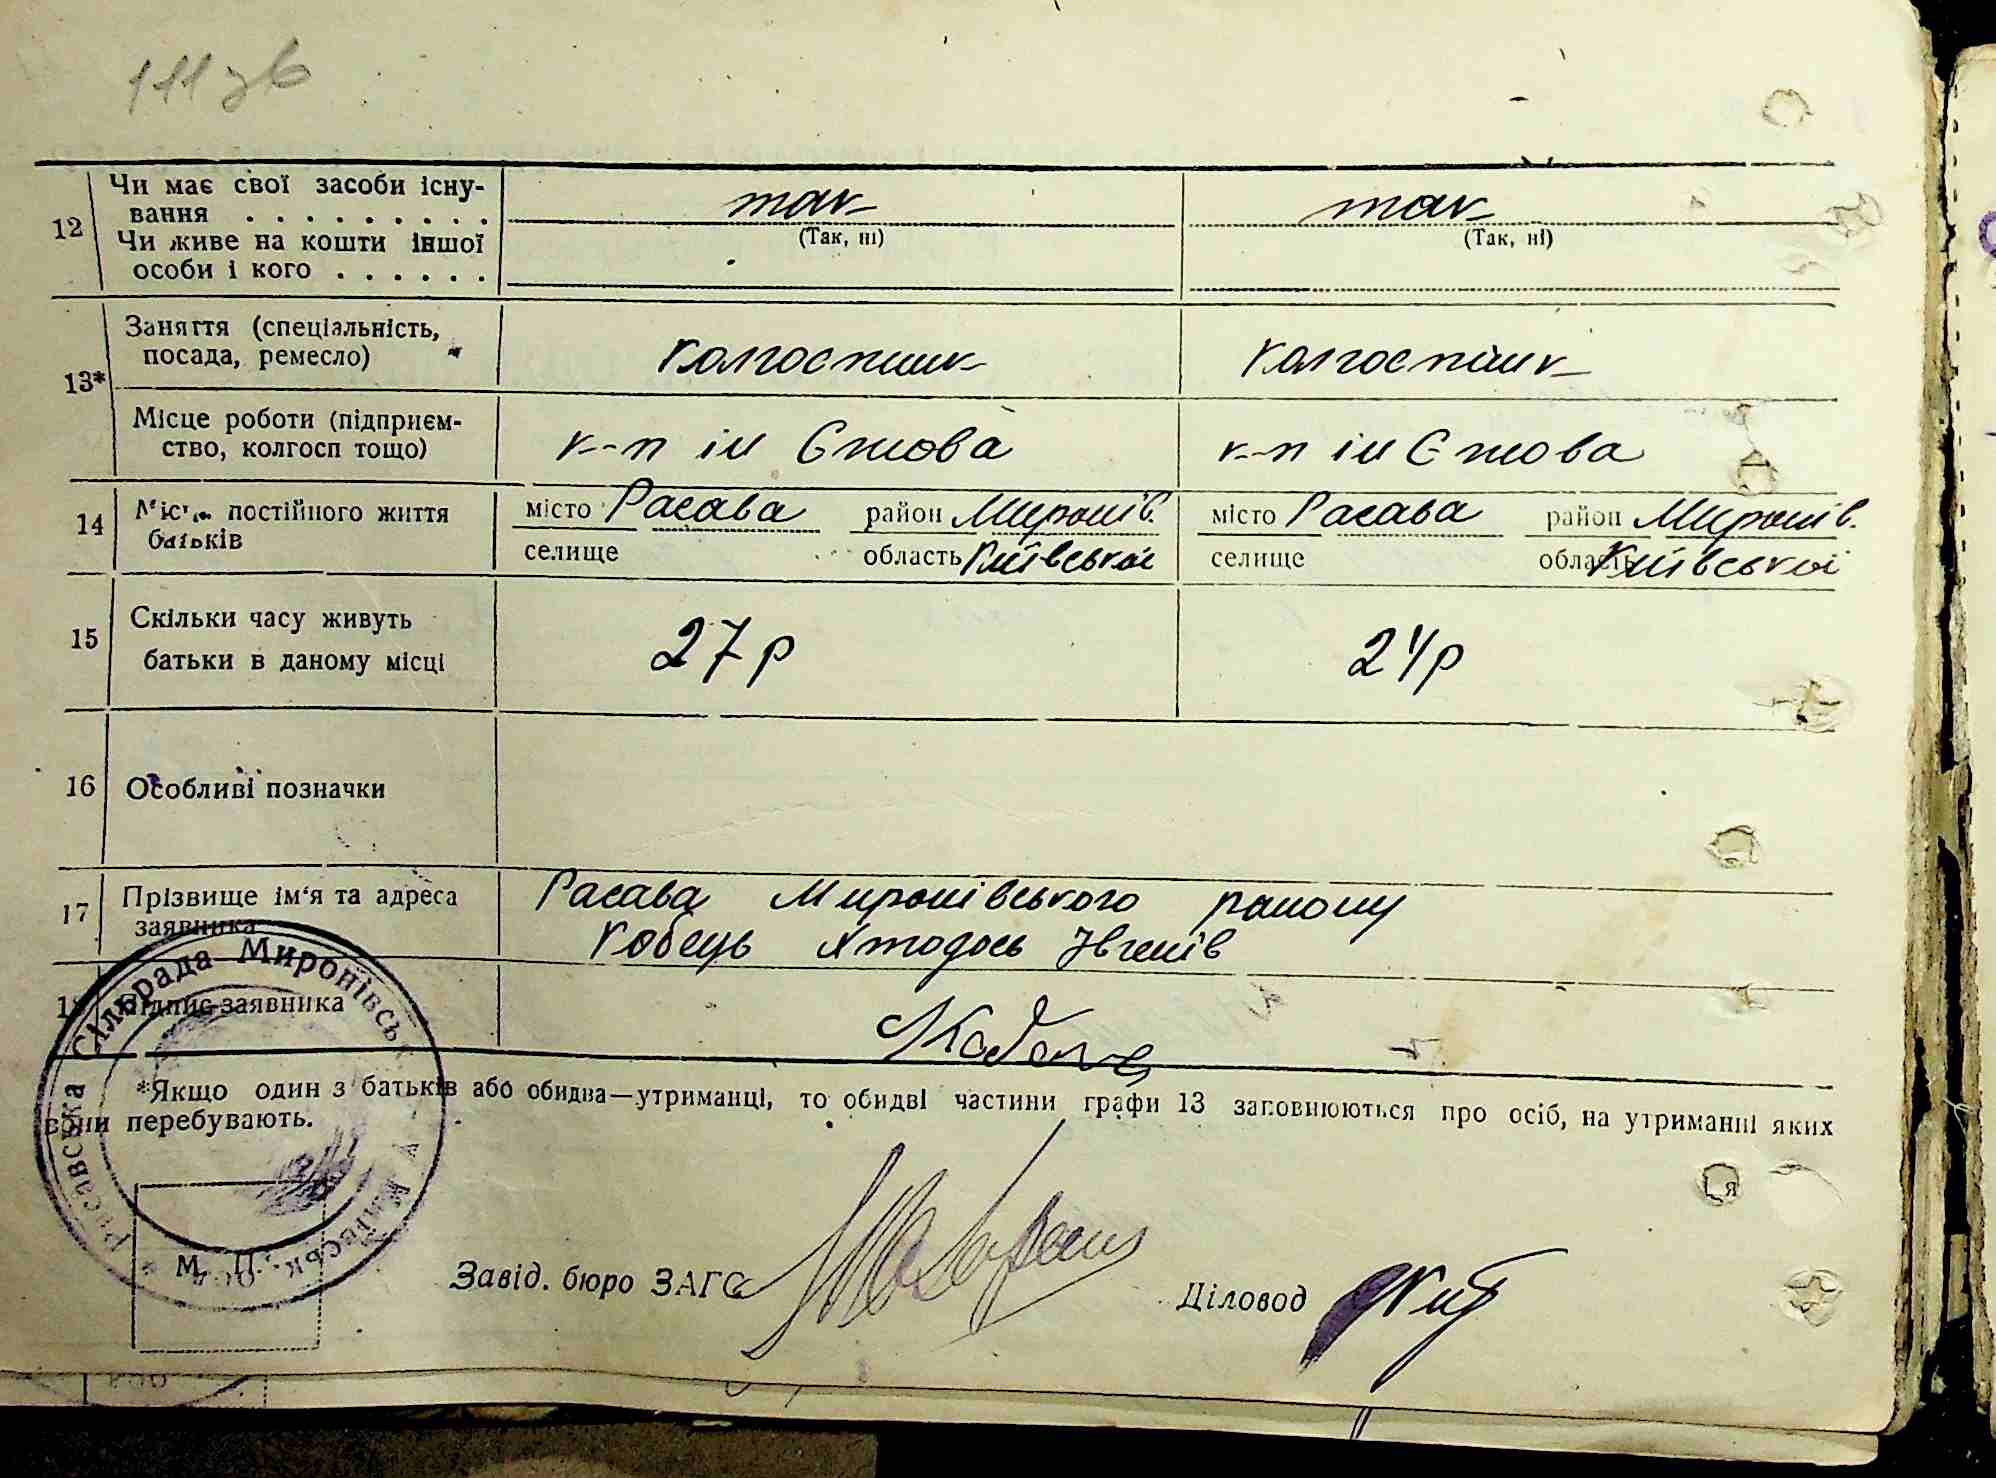 111 зв
12
Чи має свої засоби існу-
вання . . . . . . . . .
Чи живе на кошти іншої
особи і кого . . . . . .
так
(Так, ні)
так
(Так, ні)
13*
Заняття (спеціальність,
посада, ремесло)
колгоспник
колгоспник
Місце роботи (підприєм-
ство, колгосп тощо)
к-п ім Єжова
к-п ім Єжова
14
Місце постійного життя
батьків
місто Расава район Миронів.
селище область Київської
місто Расава район Миронів.
селище область Київської
15
Скільки часу живуть
батьки в даному місці
27 р
24 р
16
Особливі позначки
17
Прізвище ім'я та адреса
заявника
Расава Миронівського району
Кобець
18
Підпис заявника
*Якщо один з батьків або обидва—утриманці, то обидві частини графи 13 заповнюються про осіб, на утриманні яких
вони перебувають.
Расавська Сільрада Миронівськ
М. П.
Завід. бюро ЗАГС
Діловод